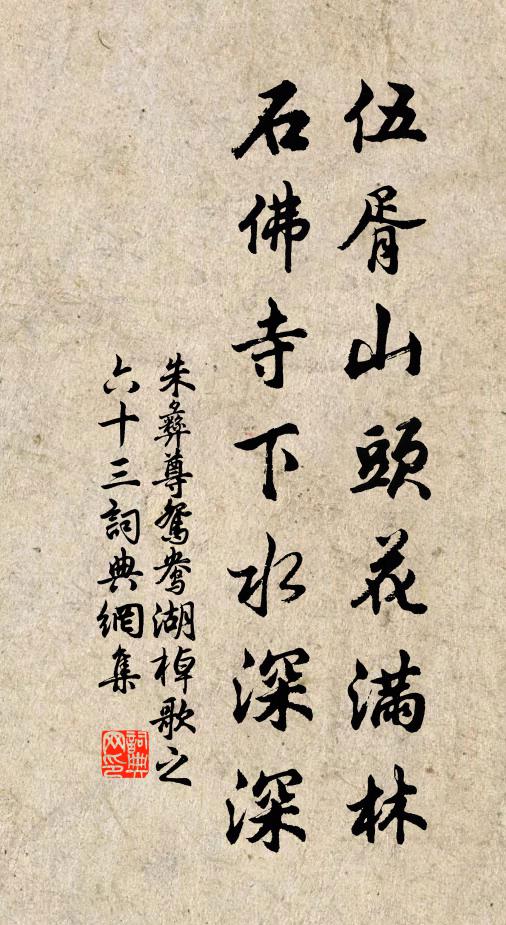 伍胥山頭花滿林
石佛寺下水深深
朱彝尊鴛鴦湖棹歌之
六十三詞典網集
詞典網印